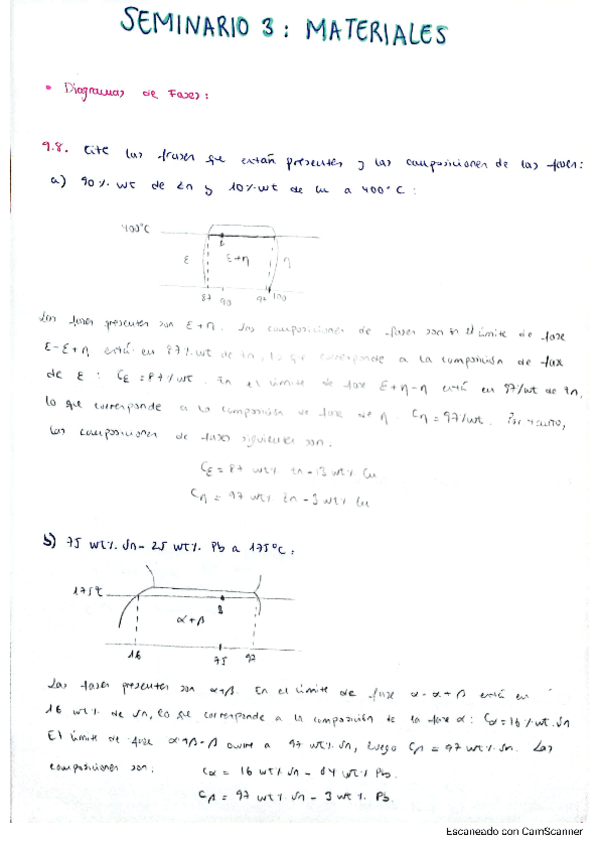 SEMINARIO 3: MATERIALES
• Diagramas de Fases:
9.8. Cite las frases que están presentes y las composiciones de las fases:
a) 90%wt de Zn y 10%wt de Cu a 400°C:
400°C
ε
ε+η
η
87 90 97 100
Las fases presentes son ε+η. Las composiciones de fases son si el límite de fase
ε-ε+η está en 87%wt de Zn, lo que corresponde a la composición de fase
de ε: Cε=87%wt. En el límite de fase ε+η-η está en 97%wt de Zn,
lo que corresponde a la composición de fase de η. Cη=97%wt. Por tanto,
las composiciones de fases siguientes son:
Cε=87 wt% Zn-13wt% Cu
Cη=97 wt% Zn-3wt% Cu
b) 75 wt%. Sn-25 wt%. Pb a 175°C:
175°C
B
α+β
16 75 97
Las fases presentes son α+β. En el límite de fase α-α+β está en
16 wt% de Sn, lo que corresponde a la composición de la fase α: Cα=16%wt.Sn
El límite de fase α+β-β ocurre a 97 wt% Sn, luego Cβ=97 wt% Sn. Las
composiciones son:
Cα=16 wt% Sn-84 wt% Pb.
Cβ=97 wt% Sn-3 wt%. Pb.
Escaneado con CamScanner